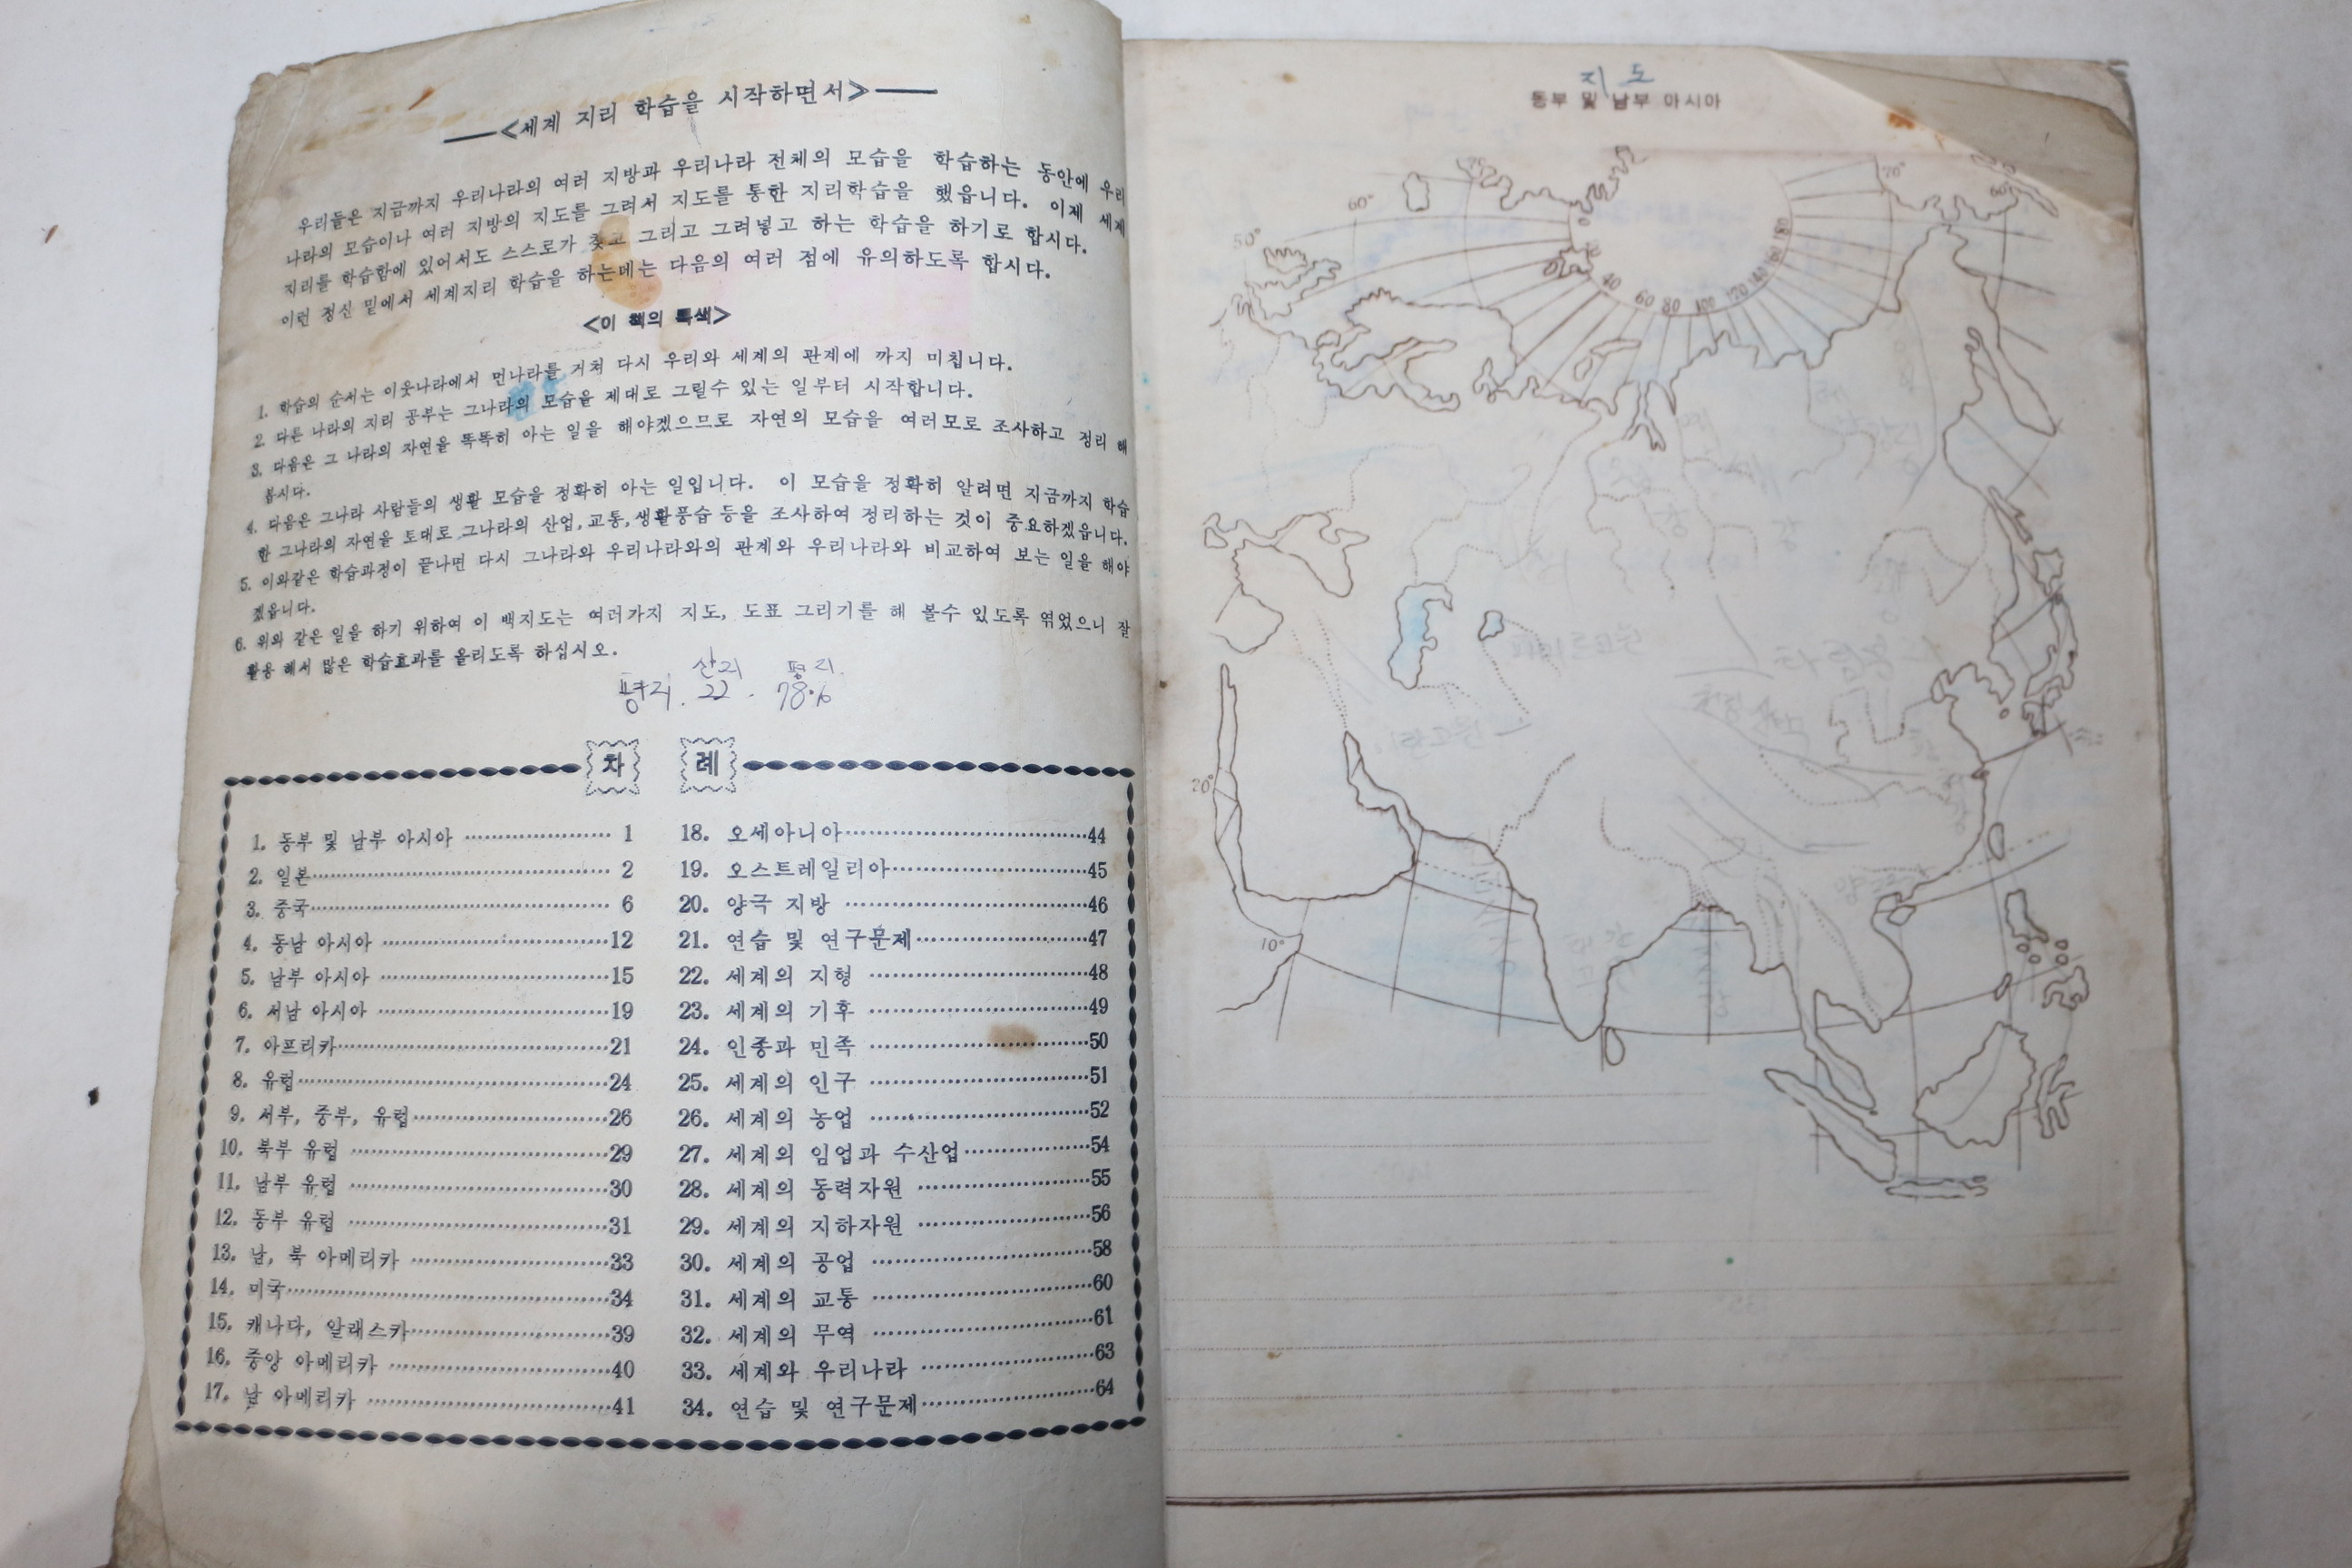 <세계 지리 학습을 시작하면서>
우리들은 지금까지 우리나라의 여러 지방과 우리나라 전체의 모습을 학습하는 동안에 우리
나라의 모습이나 여러 지방의 지도를 그려서 지도를 통한 지리학습을 했읍니다. 이제 세계
지리를 학습함에 있어서도 스스로가 찾고 그리고 그려넣고 하는 학습을 하기로 합시다.
이런 정신 밑에서 세계지리 학습을 하는데는 다음의 여러 점에 유의하도록 합시다.
<이 책의 특색>
1. 학습의 순서는 이웃나라에서 먼나라를 거쳐 다시 우리와 세계의 관계에 까지 미칩니다.
2. 다른 나라의 지리 공부는 그나라의 모습을 제대로 그릴수 있는 일부터 시작합니다.
3. 다음은 그 나라의 자연을 똑똑히 아는 일을 해야겠으므로 자연의 모습을 여러모로 조사하고 정리 해
봅시다.
4. 다음은 그나라 사람들의 생활 모습을 정확히 아는 일입니다. 이 모습을 정확히 알려면 지금까지 학습
한 그나라의 자연을 토대로 그나라의 산업, 교통, 생활풍습 등을 조사하여 정리하는 것이 중요하겠읍니다.
5. 이와같은 학습과정이 끝나면 다시 그나라와 우리나라와의 관계와 우리나라와 비교하여 보는 일을 해야
겠읍니다.
6. 위와 같은 일을 하기 위하여 이 백지도는 여러가지 지도, 도표 그리기를 해 볼수 있도록 엮었으니 잘
활용 해서 많은 학습효과를 올리도록 하십시오.
산지 평지.
22. 78%
차 례
1. 동부 및 남부 아시아 1
2. 일본 2
3. 중국 6
4. 동남 아시아 12
5. 남부 아시아 15
6. 서남 아시아 19
7. 아프리카 21
8. 유럽 24
9. 서부, 중부, 유럽 26
10. 북부 유럽 29
11. 남부 유럽 30
12. 동부 유럽 31
13. 남, 북 아메리카 33
14. 미국 34
15. 캐나다, 알래스카 39
16. 중앙 아메리카 40
17. 남 아메리카 41
18. 오세아니아 44
19. 오스트레일리아 45
20. 양극 지방 46
21. 연습 및 연구문제 47
22. 세계의 지형 48
23. 세계의 기후 49
24. 인종과 민족 50
25. 세계의 인구 51
26. 세계의 농업 52
27. 세계의 임업과 수산업 54
28. 세계의 동력자원 55
29. 세계의 지하자원 56
30. 세계의 공업 58
31. 세계의 교통 60
32. 세계의 무역 61
33. 세계와 우리나라 63
34. 연습 및 연구문제 64
지도
동부 및 남부 아시아
70°
60°
50°
70°
60°
0
20
40
60
80
100
120
140
160
180
20°
10°